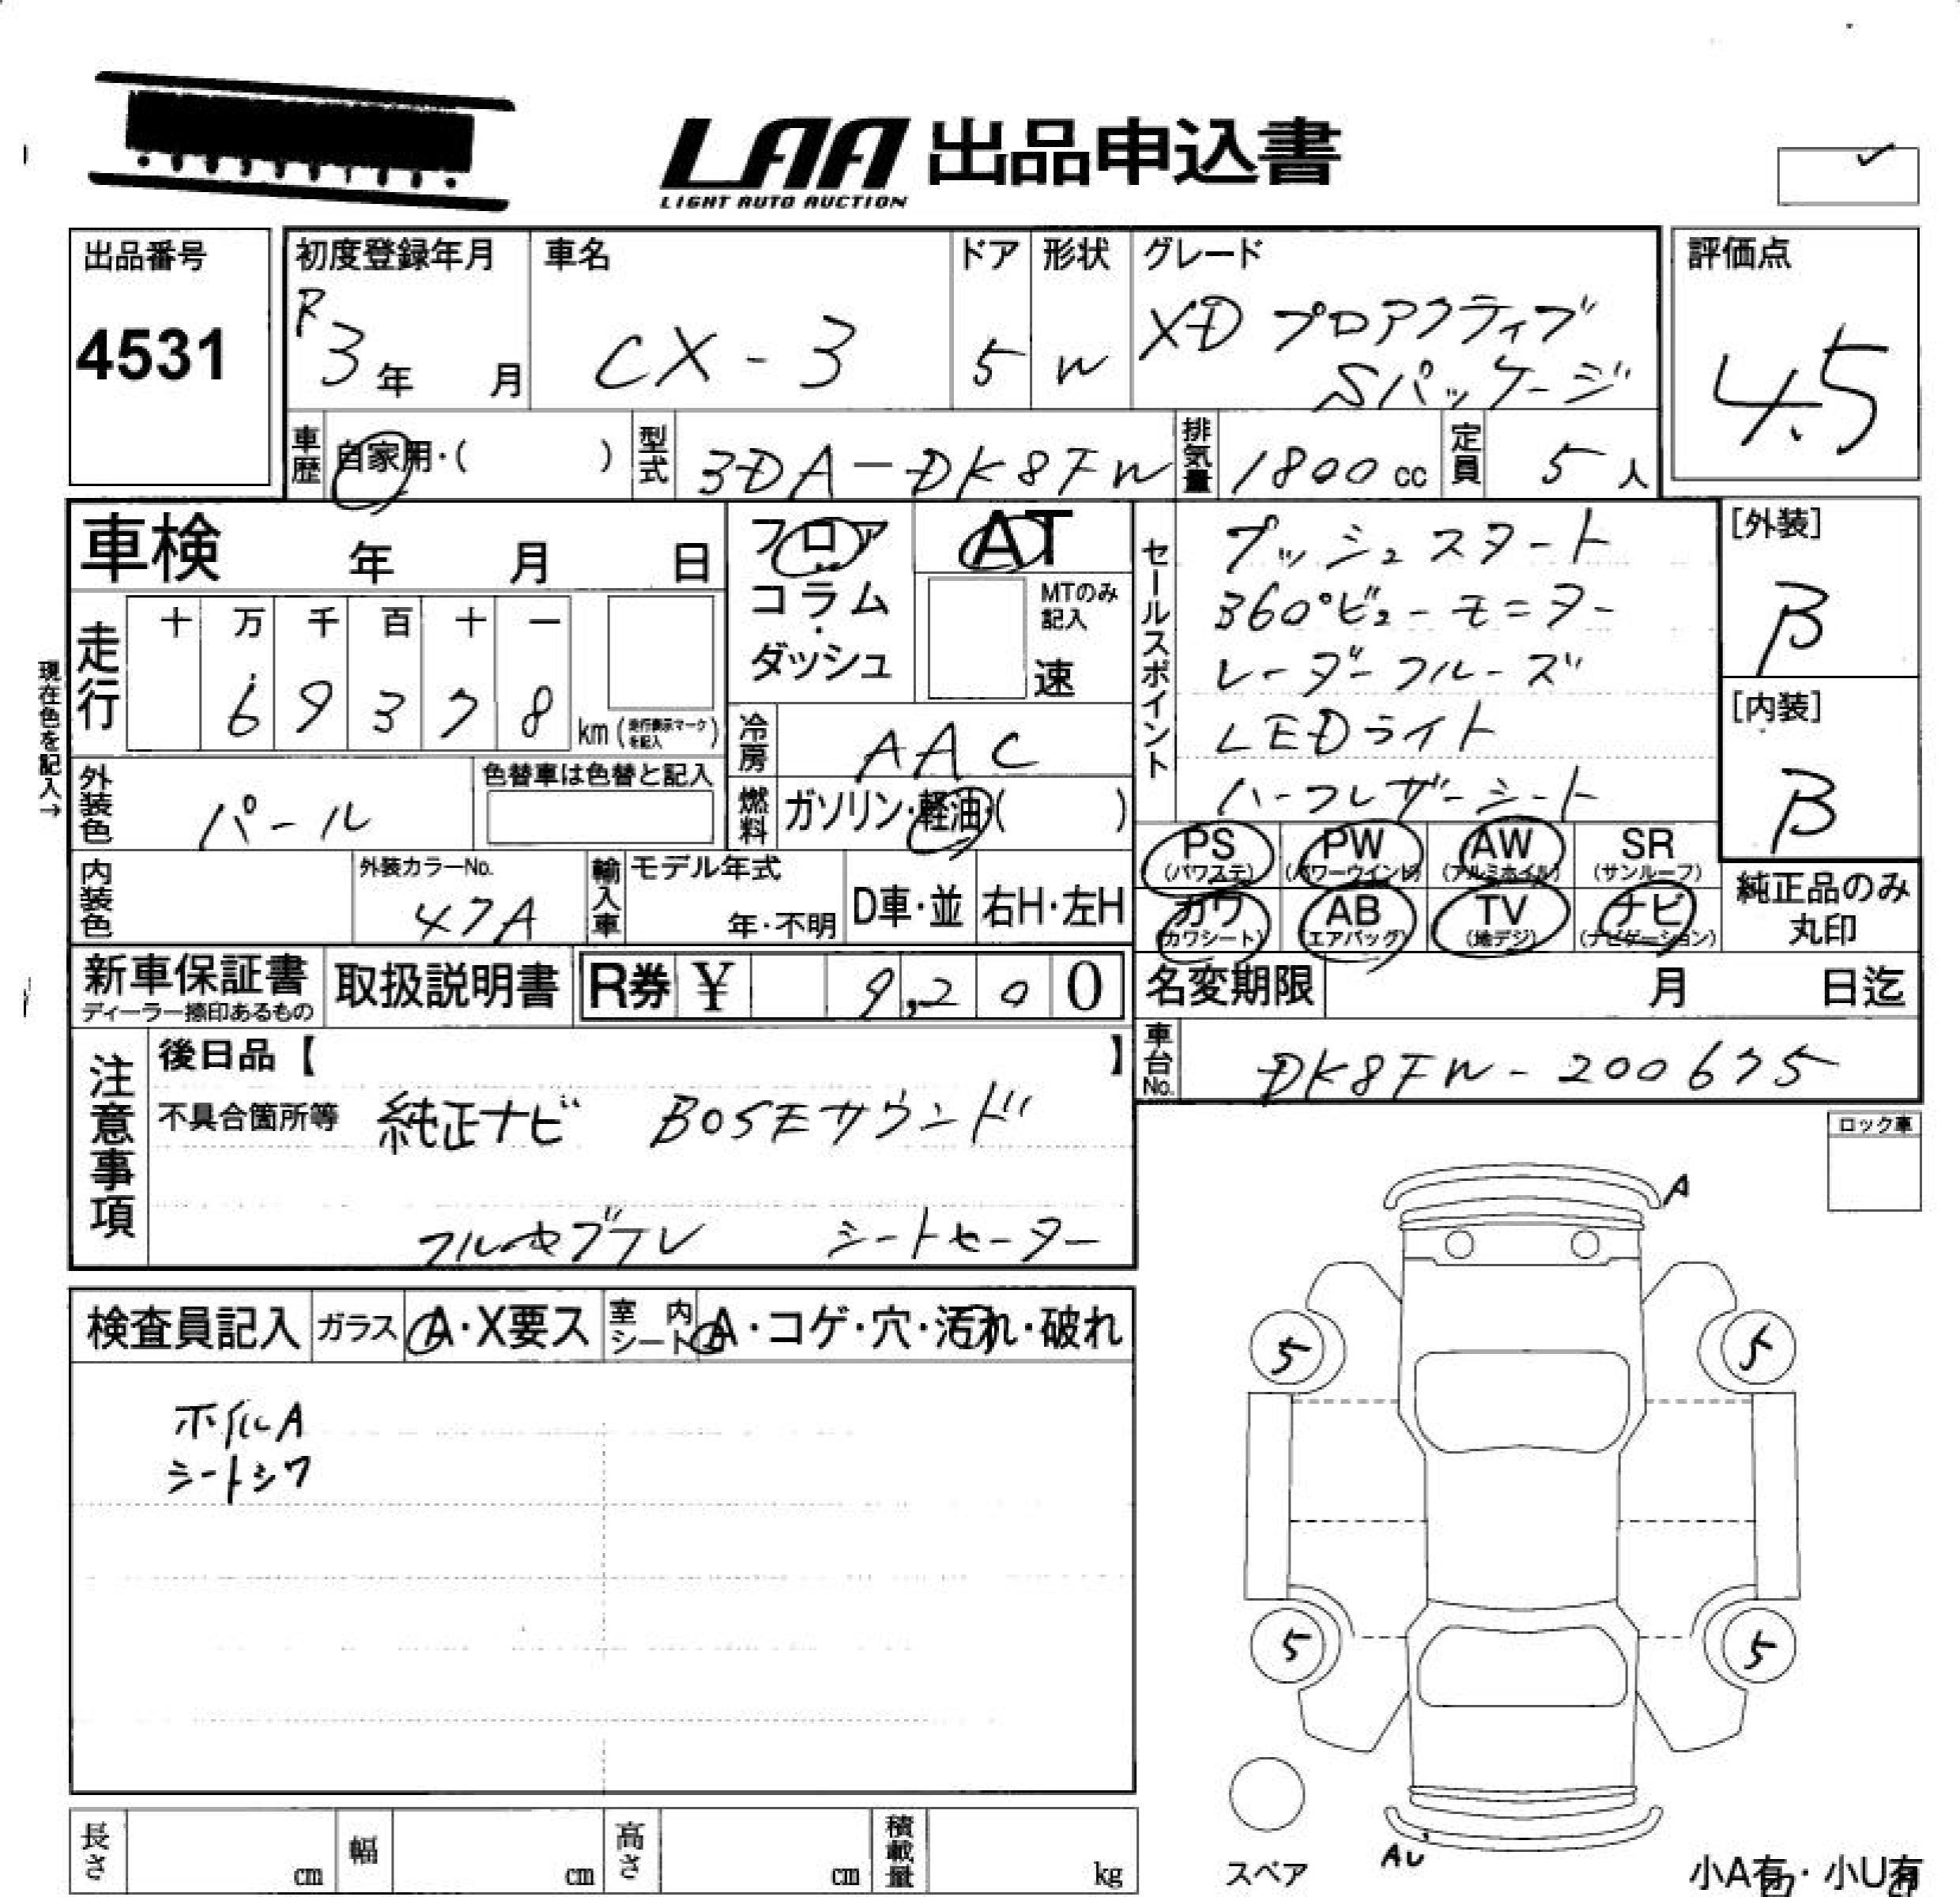 LAA 出品申込書
LIGHT AUTO AUCTION
出品番号
4531
初度登録年月
R3年 月
車名
CX-3
ドア
5
形状
W
グレード
XD プロアクティブ
Sパッケージ
評価点
4.5
車歴
自家用・( )
型式
3DA-DK8FW
排気量
1800cc
定員
5人
車検 年 月 日
フロア
コラム
・
ダッシュ
AT
MTのみ
記入
速
セールスポイント
プッシュスタート
360°ビューモニター
レーダークルーズ
LEDライト
ハーフレザーシート
[外装]
B
[内装]
B
現在色を記入→
走行
十 万 千 百 十 一
6 9 3 7 8
km(走行表示マークを記入)
冷房
AAC
外装色
パール
色替車は色替と記入
燃料
ガソリン・軽油・( )
PS
(パワステ)
PW
(パワーウインド)
AW
(アルミホイル)
SR
(サンルーフ)
カワ
(カワシート)
AB
(エアバッグ)
TV
(地デジ)
ナビ
(ナビゲーション)
純正品のみ
丸印
内装色
外装カラーNo.
47A
輸入車
モデル年式
年・不明
D車・並
右H・左H
新車保証書
ディーラー捺印あるもの
取扱説明書
R券 ¥ 9,200
名変期限 月 日迄
車台No.
DK8FW-200675
注意事項
後日品【 】
不具合箇所等 純正ナビ BOSEサウンド
フルセグTV シートヒーター
ロック車
A
検査員記入
ガラス
A・X要ス
室内シート
A・コゲ・穴・汚れ・破れ
ホイルA
シートシワ
5 5
5 5
スペア
AU
小A有・小U有
長さ cm
幅 cm
高さ cm
積載量 kg